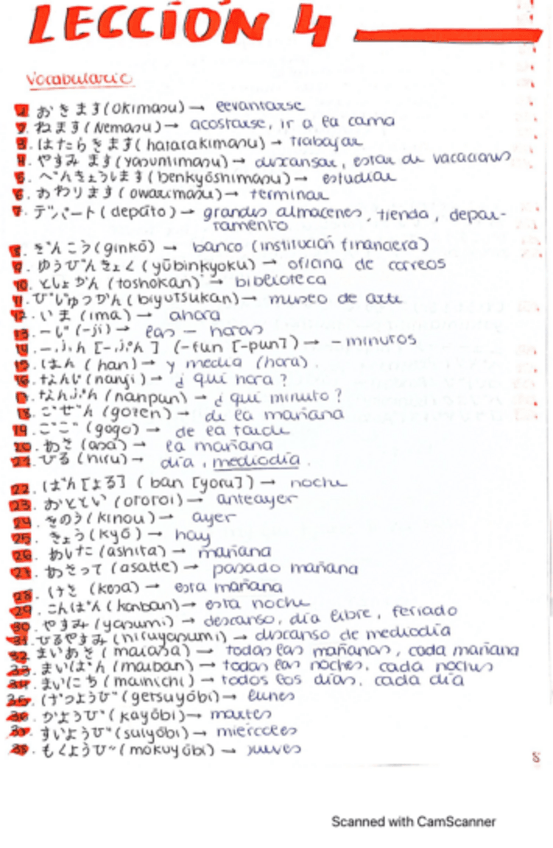 LECCIÓN 4
Vocabulario
1. おきます (okimasu) → levantarse
2. ねます (Nemasu) → acostarse, ir a la cama
3. はたらきます (hatarakimasu) → trabajar
4. やすみます (yasumimasu) → descansar, estar de vacaciones
5. べんきょうします (benkyōshimasu) → estudiar
6. おわります (owarimasu) → terminar
7. デパート (depāto) → grandes almacenes, tienda, depar-
tamento
8. ぎんこう (ginkō) → banco (institución financiera)
9. ゆうびんきょく (yūbinkyoku) → oficina de correos
10. としょかん (toshokan) → biblioteca
11. びじゅつかん (biyutsukan) → museo de arte
12. いま (ima) → ahora
13. −じ (-ji) → las − horas
14. −ふん [-ぷん] (-fun [-pun]) → − minutos
15. はん (han) → y media (hora)
16. なんじ (nanji) → ¿ qué hora ?
17. なんぷん (nanpun) → ¿ qué minuto ?
18. ごぜん (gozen) → de la mañana
19. ごご (gogo) → de la tarde
20. あさ (asa) → la mañana
21. ひる (hiru) → día, mediodía.
22. ばん [よる] (ban [yoru]) → noche
23. おととい (ototoi) → anteayer
24. きのう (kinou) → ayer
25. きょう (kyō) → hoy
26. あした (ashita) → mañana
27. あさって (asatte) → pasado mañana
28. けさ (kesa) → esta mañana
29. こんばん (konban) → esta noche
30. やすみ (yasumi) → descanso, día libre, feriado
31. ひるやすみ (hiruyasumi) → descanso de mediodía
32. まいあさ (maiasa) → todas las mañanas, cada mañana
33. まいばん (maiban) → todas las noches, cada noches
34. まいにち (mainichi) → todos los días, cada día
35. げつようび (getsuyōbi) → lunes
36. かようび (kayōbi) → martes
37. すいようび (suiyōbi) → miércoles
38. もくようび (mokuyōbi) → jueves
8
Scanned with CamScanner